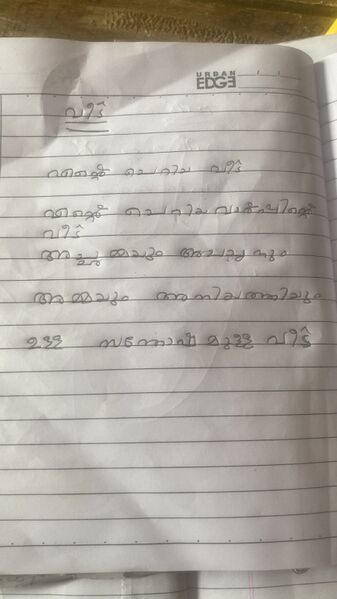 URBAN
EDGE
വീട്
എന്റെ ചെറിയ വീട്
എന്റെ ചെറിയ വാർപ്പിന്റെ
വീട്
അച്ഛമ്മയും അച്ഛനും
അമ്മയും അനിയത്തിയും
ഉള്ള സന്തോഷമുള്ള വീട്